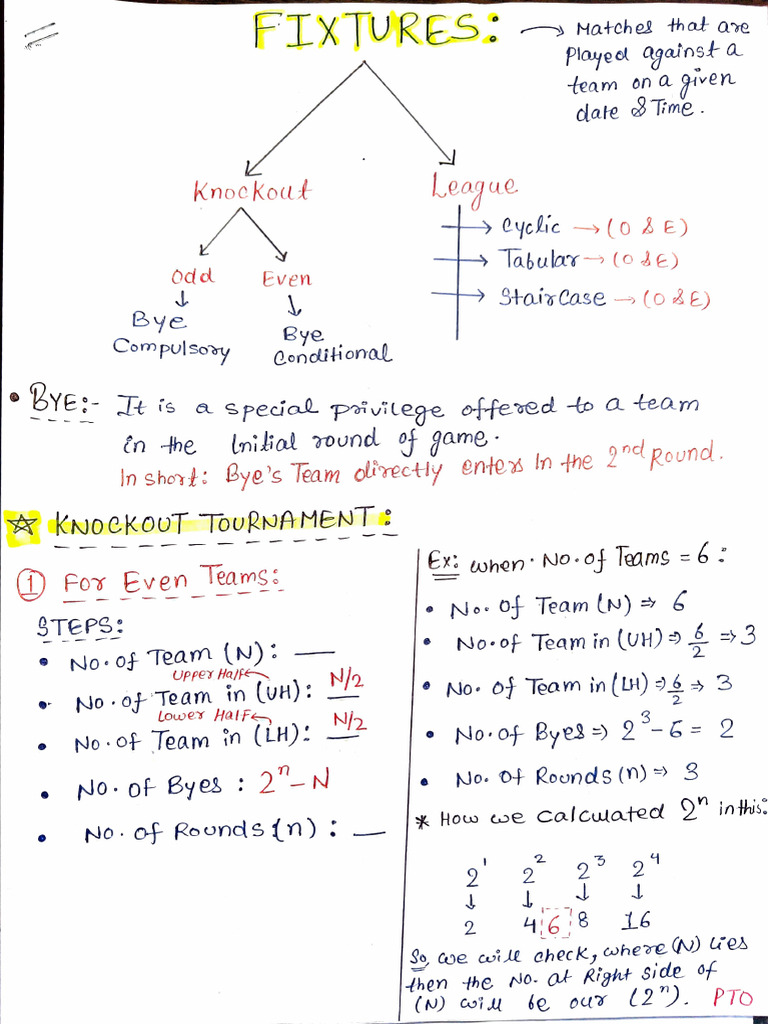 FIXTURES:
→ Matches that are
Played against a
team on a given
date & Time.
Knockout
League
Odd
Even
Bye
Compulsory
Bye
Conditional
→ Cyclic → (O & E)
→ Tabular → (O & E)
→ StairCase → (O & E)
• BYE:- It is a special privilege offered to a team
in the Initial round of game.
In short: Bye's Team directly enters In the 2nd Round.
☆ KNOCKOUT TOURNAMENT:
① For Even Teams:
STEPS:
• No. of Team (N): __
Upper Half
• No. of Team in (UH): N/2
Lower Half
• No. of Team in (LH): N/2
• No. of Byes : 2ⁿ - N
• No. of Rounds (n) : __
Ex: when No. of Teams = 6 :
• No. Of Team (N) ⇒ 6
• No. of Team in (UH) ⇒ 6/2 ⇒ 3
• No. of Team in (LH) ⇒ 6/2 ⇒ 3
• No. of Byes ⇒ 2³ - 6 = 2
• No. Of Rounds (n) ⇒ 3
* How we calculated 2ⁿ in this:
2¹ 2² 2³ 2⁴
↓ ↓ ↓ ↓
2 4 6 8 16
So, we will check, where (N) lies
then the No. at Right side of
(N) will be our (2ⁿ). PTO